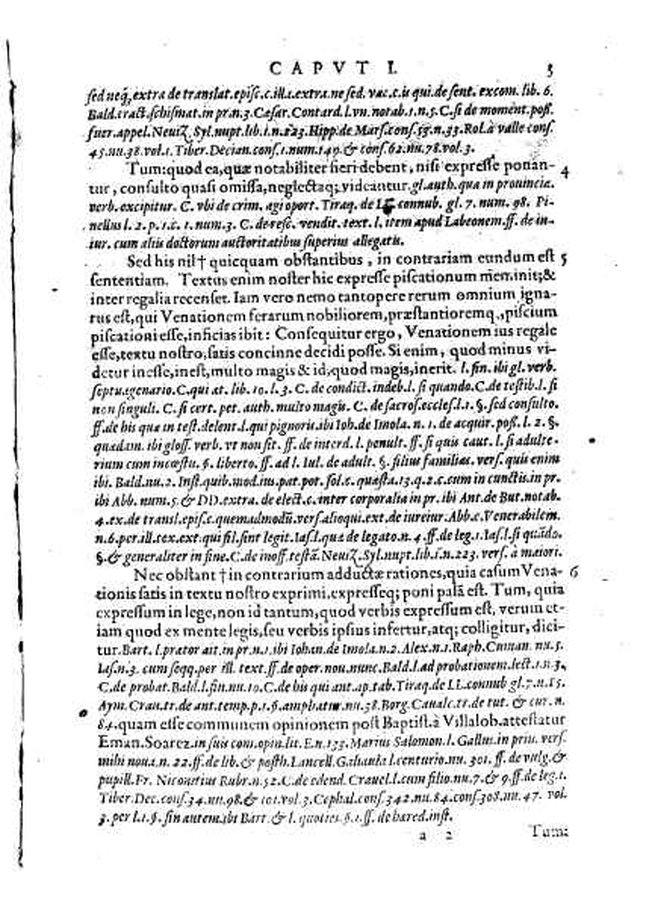 CAPVT I. 3
sed neq; extra de translat. episc. c. ill. 1. extra. ne sed. vac. c. is qui. de sent. excom. lib. 6.
Bald. tract. schismat. in pr. n. 3. Cæsar. Contard. l. vn. notab. 1. n. 5. C. si de moment. poss.
fuer. appel. Neuiz. Syl. nupt. lib. 1. n. 223. Hipp. de Mars. cons. 53. n. 33. Rol. à valle cons.
45. nu. 38. vol. 1. Tiber. Decian. cons. 1. num. 149. & cons. 62. nu. 78. vol. 3.
Tum: quod ea, quæ notabiliter fieri debent, nisi expresse ponan- 4
tur, consulto quasi omissa, neglectaq; videantur. gl. auth. qua in prouincia.
verb. excipitur. C. vbi de crim. agi oport. Tiraq. de LL. connub. gl. 7. num. 98. Pi-
nellus l. 2. p. 1. c. 1. num. 3. C. de resc. vendit. text. l. item apud Labeonem. ff. de in-
iur. cum aliis doctorum auctoritatibus superius allegatis.
Sed his nil† quicquam obstantibus, in contrariam eundum est 5
sententiam. Textus enim noster hic expresse piscationum mẽn. init; &
inter regalia recenset. Iam vero nemo tantopere rerum omnium igna-
rus est, qui Venationem ferarum nobiliorem, præstantioremq., piscium
piscationi esse, inficias ibit: Consequitur ergo, Venationem ius regale
esse, textu nostro, satis concinne decidi posse. Si enim, quod minus vi-
detur inesse, inest, multo magis & id, quod magis, inerit. l. fin. ibi gl. verb.
septuagenario. C. qui æt. lib. 10. l. 3. C. de condict. indeb. l. si quando. C. de testib. l. si
non singuli. C. si cert. pet. auth. multo magis. C. de sacros. eccles. l. 1. §. sed consulto.
ff. de his qua in test. delent. l. qui pignoris. ibi Ioh. de Imola. n. 1. de acquir. poss. l. 2. §.
quædam. ibi gloss. verb. vt non sit. ff. de interd. l. penult. ff. si quis caut. l. si adulte-
rium cum incœstu. §. liberto. ff. ad l. Iul. de adult. §. filius familias. vers. quis enim
ibi. Bald. nu. 2. Inst. quib. mod. ius pat. pot. sol. c. quæsta. 13. q. 2. c. cum in cunctis. in pr.
ibi Abb. num. 5. & DD. extra. de elect. c. inter corporalia in pr. ibi Ant. de But. notab.
4. ex. de transl. epis. c. quemadmodũ. vers. alioqui. ext. de iureiur. Abb. c. Venerabilem.
n. 6. per ill. tex. ext. qui fil. sint legit. Ias. l. qua de legato. n. 4. ff. de leg. 1. Ias. l. si quãdo.
§. & generaliter in fine. C. de inoff. testã. Neuiz. Syl. nupt. lib. 1. n. 223. vers. à maiori.
Nec obstant † in contrarium adductæ rationes, quia casum Vena- 6
tionis satis in textu nostro exprimi, expresseq; poni palã est. Tum, quia
expressum in lege, non id tantum, quod verbis expressum est, verum et-
iam quod ex mente legis, seu verbis ipsius infertur, atq; colligitur, dici-
tur. Bart. l. prætor ait. in pr. n. 1. ibi Iohan. de Imola. n. 2. Alex. n. 1. Raph. Cuman. nu. 5.
Ias. n. 3. cum seqq. per ill. text. ff. de oper. nou. nunc. Bald. l. ad probationem. lect. 1. n. 3.
C. de probat. Bald. l. fin. nu. 10. C. de his qui ant. ap. tab. Tiraq. de LL. connub gl. 7. n. 15.
Aym. Crau. tr. de ant. temp. p. 1. §. ampliatur nu. 38. Borg. Caualc. tr. de tut. & cur. n.
84. quam esse communem opinionem post Baptist. à Villalob. attestatur
Eman. Soarez. in suis com. opin. lit. E. n. 133. Marius Salomon. l. Gallus. in prin. vers.
mihi noua. n. 22. ff. de lib. & posth. Lancell. Galiaula l. centurio. nu. 301. ff. de vulg. &
pupill. Fr. Niconitius Rubr. n. 52. C. de edend. Crauel. l. cum filio. nu. 7. & 9. ff. de leg. 1.
Tiber. Dec. cons. 34. nu. 98. & 101. vol. 3. Cephal. cons. 342. nu. 84. cons. 308. nu. 47. vol.
3. per l. 1. §. sin autem. ibi Bart. & l. quoties. §. 1. ff. de hæred. inst.
a 2 Tum: